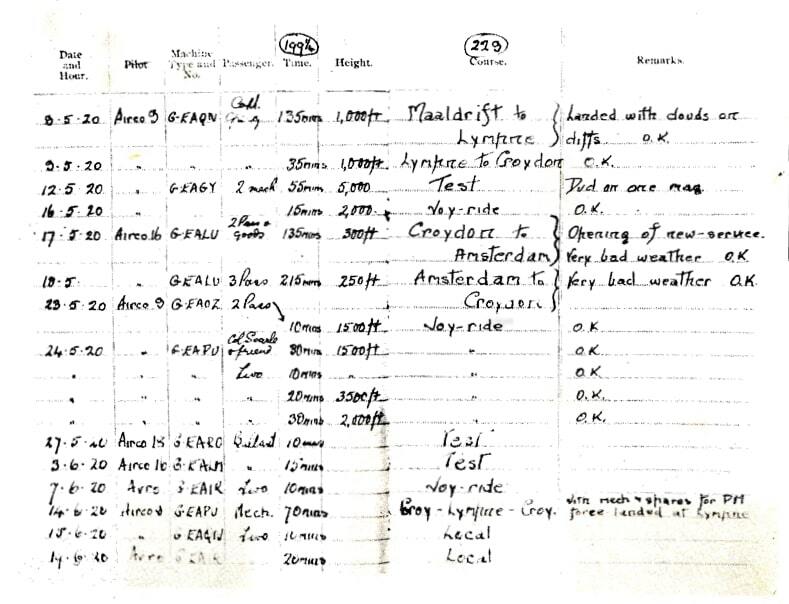 199¾ 223
Date and Hour. Pilot Machine Type and No. Passenger. Time. Height. Course. Remarks.
8.5.20 Airco 9 G-EAQN 135mns 1,000ft Maaldrift to Landed with clouds on
Lympne cliffs O.K.
9.5.20 " " " 35mns 1,000ft Lympne to Croydon O.K.
12.5.20 " G-EAGY 2 mech 55mns 5,000 Test Dud on one mag.
16.5.20 " " 15mns 2,000 Joy-ride O.K.
17.5.20 Airco 16 G-EALU 2 Pass & goods 135mns 300ft Croydon to Opening of new-service.
Amsterdam Very bad weather O.K.
18.5. G-EALU 3 Pass 215mns 250ft Amsterdam to Very bad weather O.K.
23.5.20 Airco 9 G-EAOZ 2 Pass Croydon
10mns 1500ft Joy-ride O.K.
24.5.20 " G-EAPU & friend 30mns 1500ft " O.K.
" " " Two 10mns " O.K.
" " " 20mns 3500ft " O.K.
" " " 30mns 2,000ft " O.K.
27.5.20 Airco 18 Ballast 10mns Test
3.6.20 Airco 16 " 15mns Test
7.6.20 Avro Two 10mns Joy-ride
14.6.20 Airco 9 G-EAPU Mech. 70mns Croy-Lympne-Croy. with mech & spares for PM
force landed at Lympne
15.6.20 " Two 10mns Local
20mns Local